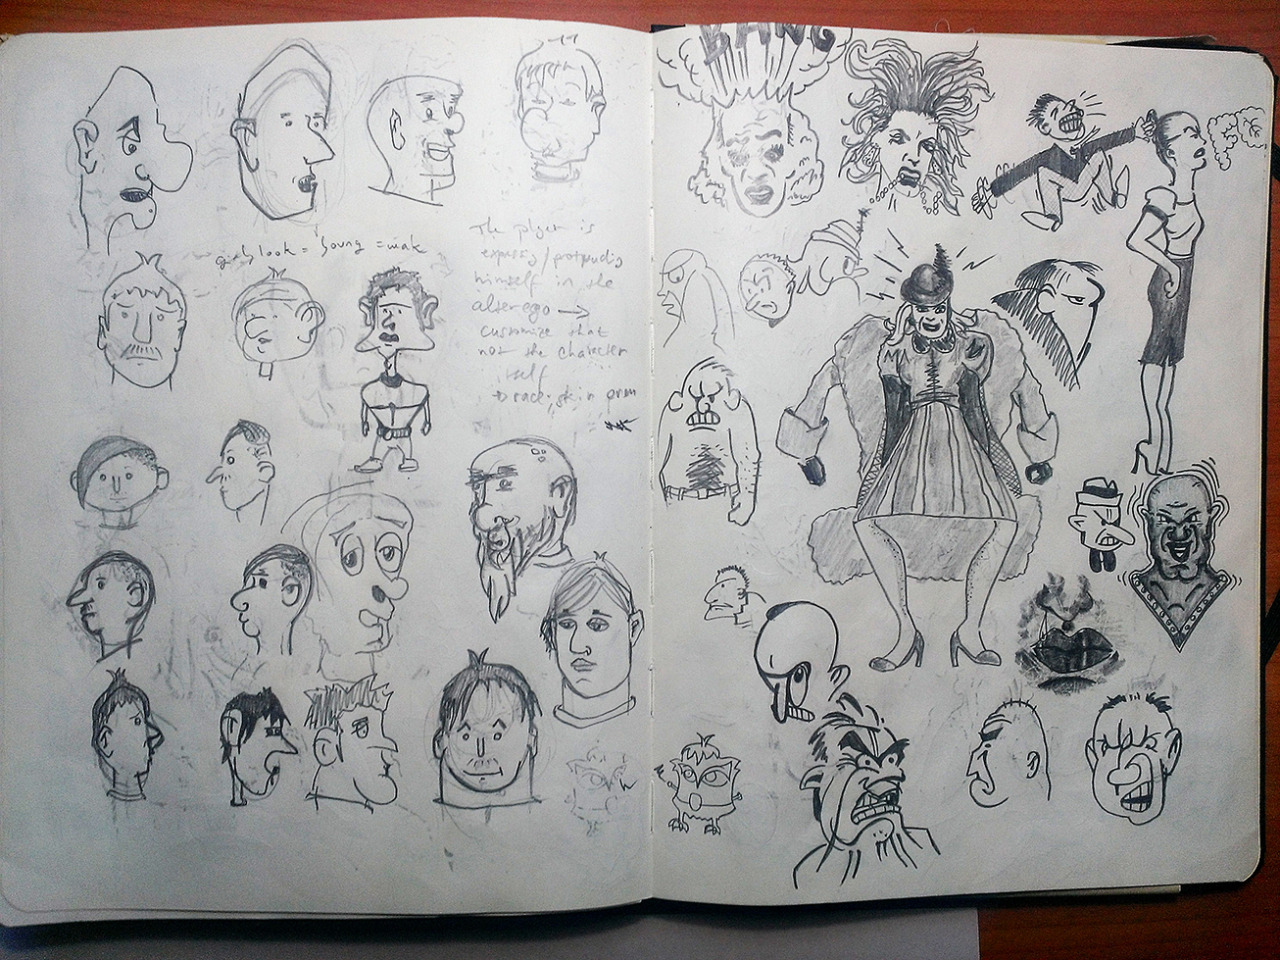 girly look = young = weak
The player is
expressg/protrudig
himself in the
alterego →
customize that
not the character
self
race, skin
BANG